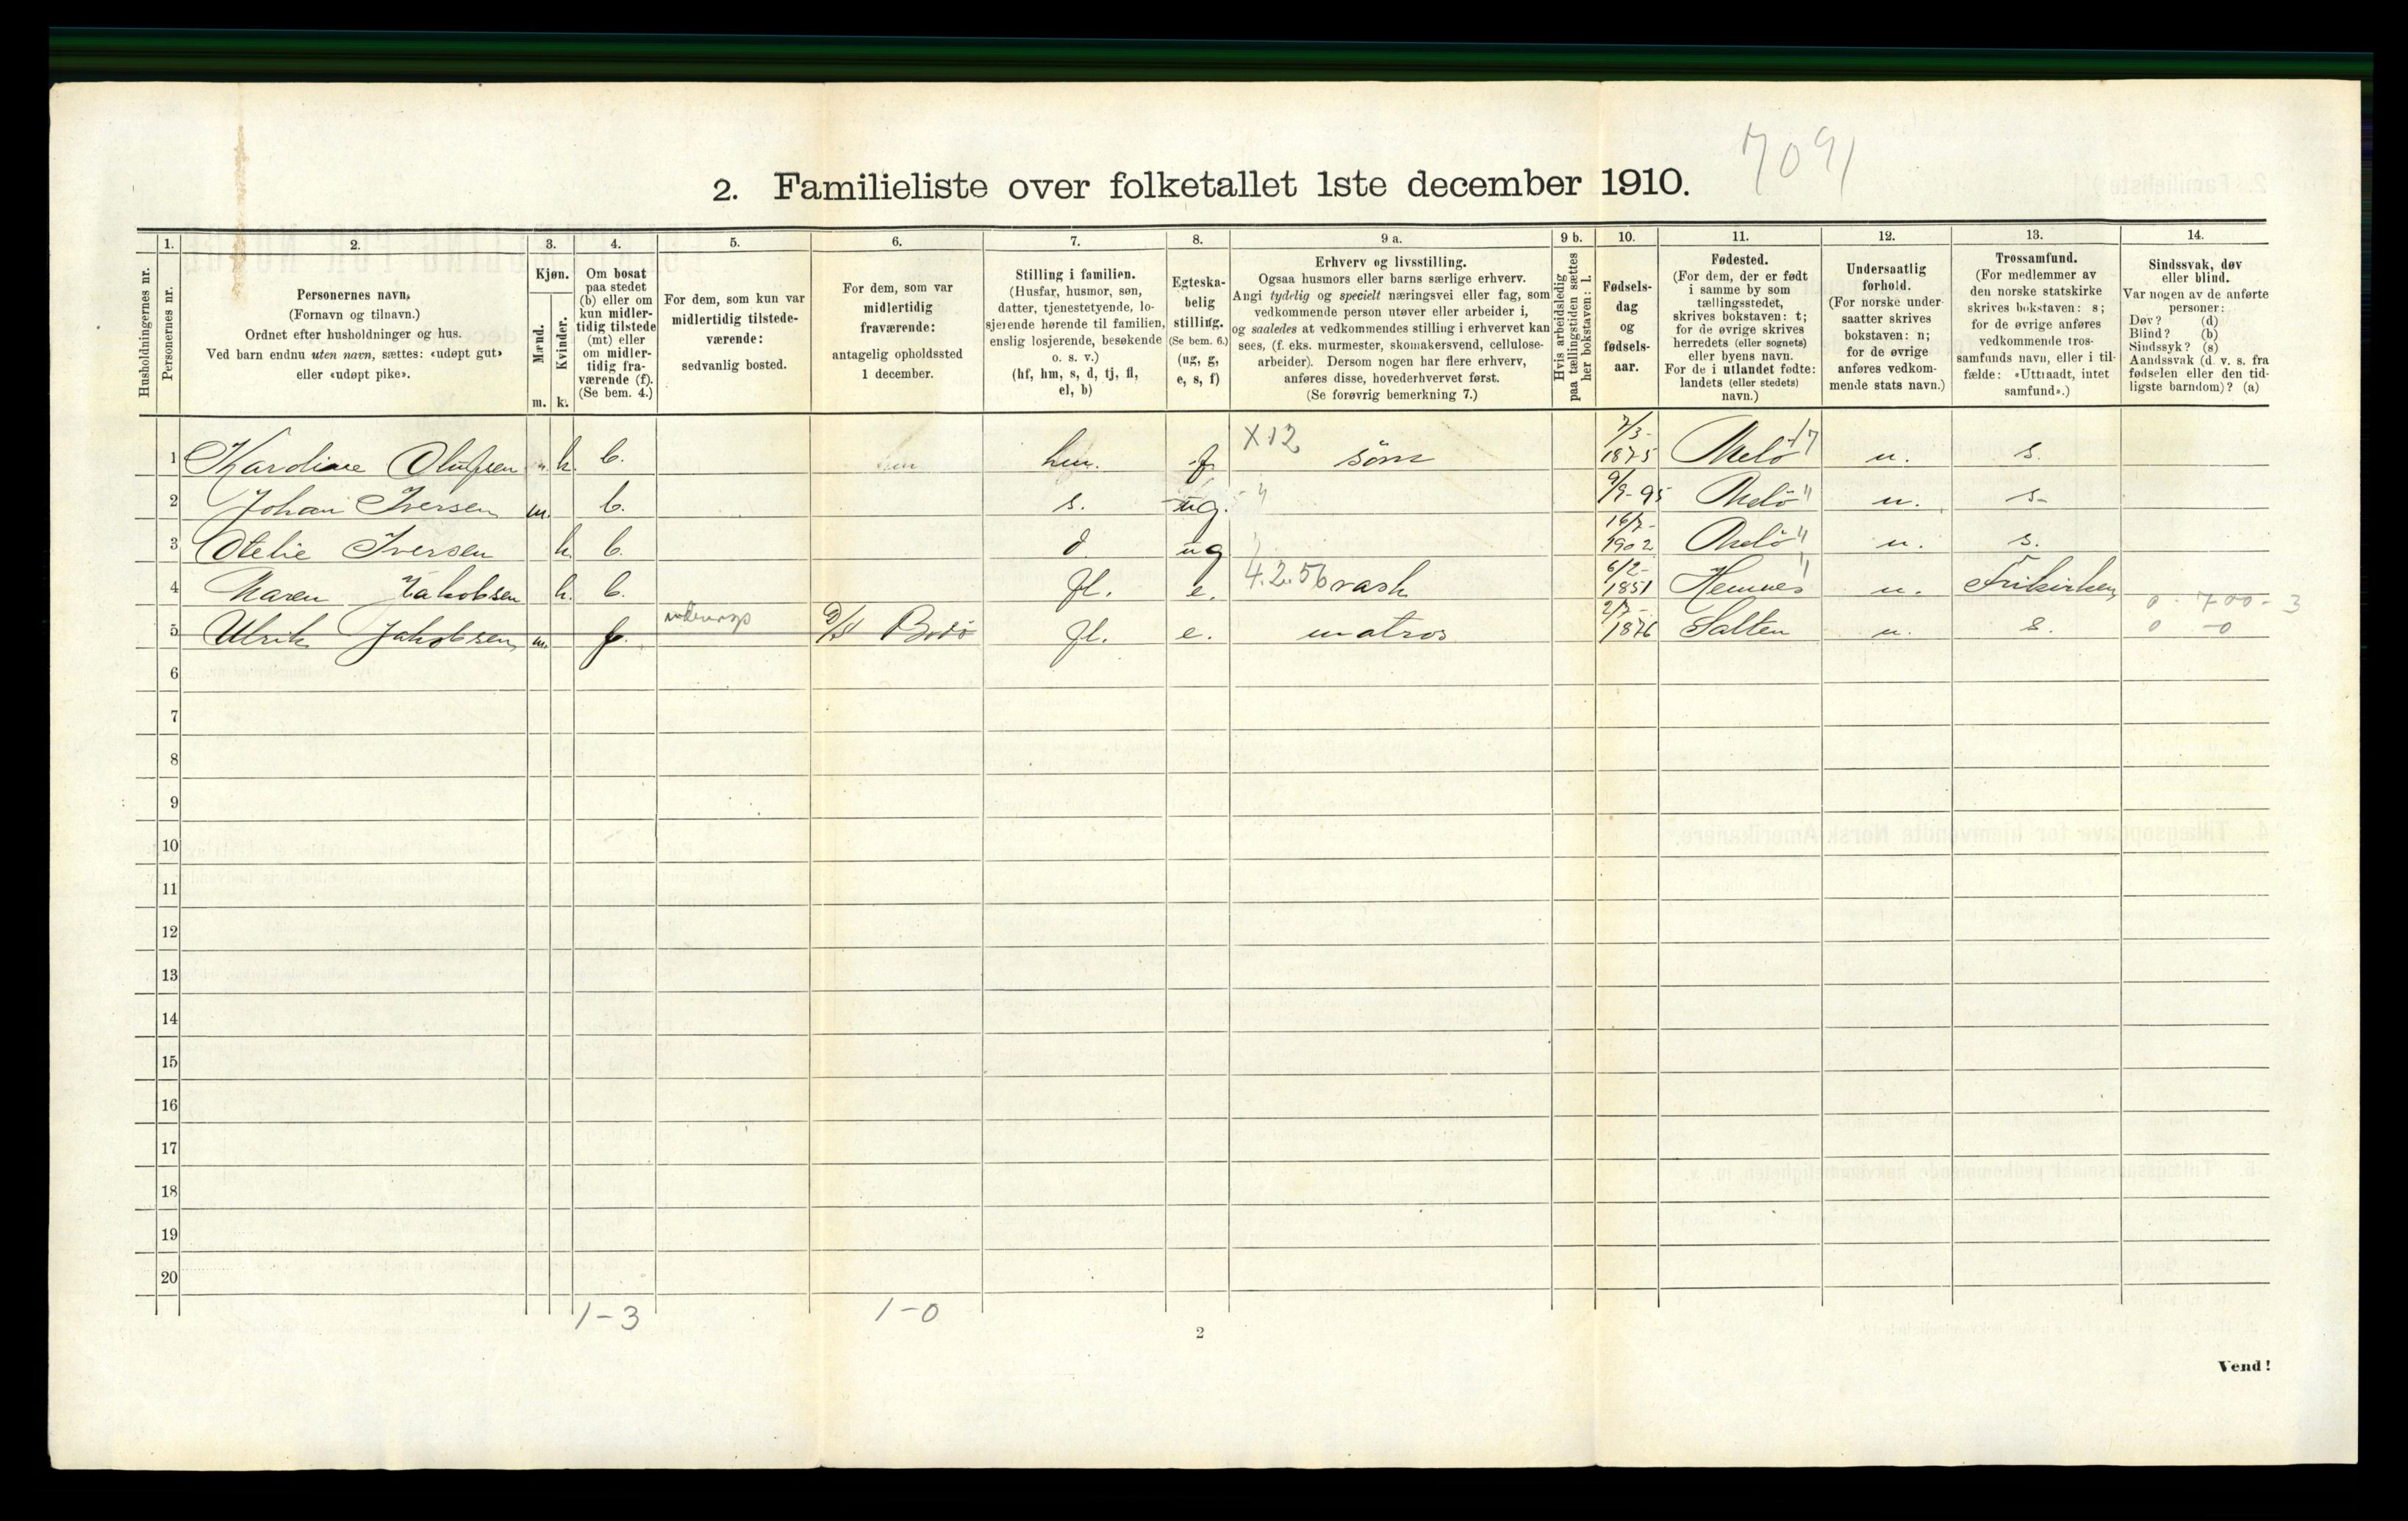 7091
2. Familieliste over folketallet 1ste december 1910.
1. 2. 3. 4. 5. 6. 7. 8. 9 a. 9 b. 10. 11. 12. 13. 14.
Husholdningernes nr.
Personernes nr.
Personernes navn.
(Fornavn og tilnavn.)
Ordnet efter husholdninger og hus.
Ved barn endnu uten navn, sættes: «udøpt gut»
eller «udøpt pike».
Kjøn.
Mænd.
Kvinder.
m. k.
Om bosat
paa stedet
(b) eller om
kun midler-
tidig tilstede
(mt) eller
om midler-
tidig fra-
værende (f).
(Se bem. 4.)
For dem, som kun var
midlertidig tilstede-
værende:
sedvanlig bosted.
For dem, som var
midlertidig
fraværende:
antagelig opholdssted
1 december.
Stilling i familien.
(Husfar, husmor, søn,
datter, tjenestetyende, lo-
sjerende hørende til familien,
enslig losjerende, besøkende
o. s. v.)
(hf, hm, s, d, tj, fl,
el, b)
Egteska-
belig
stilling.
(Se bem. 6.)
(ug, g,
e, s, f)
Erhverv og livsstilling.
Ogsaa husmors eller barns særlige erhverv.
Angi tydelig og specielt næringsvei eller fag, som
vedkommende person utøver eller arbeider i,
og saaledes at vedkommendes stilling i erhvervet kan
sees, (f. eks. murmester, skomakersvend, cellulose-
arbeider). Dersom nogen har flere erhverv,
anføres disse, hovederhvervet først.
(Se forøvrig bemerkning 7.)
Hvis arbeidsledig
paa tællingstiden sættes
her bokstaven: l.
Fødsels-
dag
og
fødsels-
aar.
Fødested.
(For dem, der er født
i samme by som
tællingsstedet,
skrives bokstaven: t;
for de øvrige skrives
herredets (eller sognets)
eller byens navn.
For de i utlandet fødte:
landets (eller stedets)
navn.)
Undersaatlig
forhold.
(For norske under-
saatter skrives
bokstaven: n;
for de øvrige
anføres vedkom-
mende stats navn.)
Trossamfund.
(For medlemmer av
den norske statskirke
skrives bokstaven: s;
for de øvrige anføres
vedkommende tros-
samfunds navn, eller i til-
fælde: «Uttraadt, intet
samfund».)
Sindssvak, døv
eller blind.
Var nogen av de anførte
personer:
Døv? (d)
Blind? (b)
Sindssyk? (s)
Aandssvak (d. v. s. fra
fødselen eller den tid-
ligste barndom)? (a)
1 Kardine Olufsen k. b. hm. f. X12 söm 7/3- 1875 Melö 17 n. s.
2 Johan Iversen m. b. s. ug. " 9/9-95 Melö " n. s-
3 Otelie Iversen k. b. d. ug 16/7- 1902 Melö " n. s.
4 Maren Jakobsen k. b. fl. e. 4.2.56 vask 6/2- 1851 Hemnes " n. Frikirken
0-700-3
5 Ulrik Jakobsen m. f. D/S Bodö fl. e. matros 2/7- 1876 Salten n. s. 0-0
6
7
8
9
10
11
12
13
14
15
16
17
18
19
20
1-3 1-0
2
Vend!